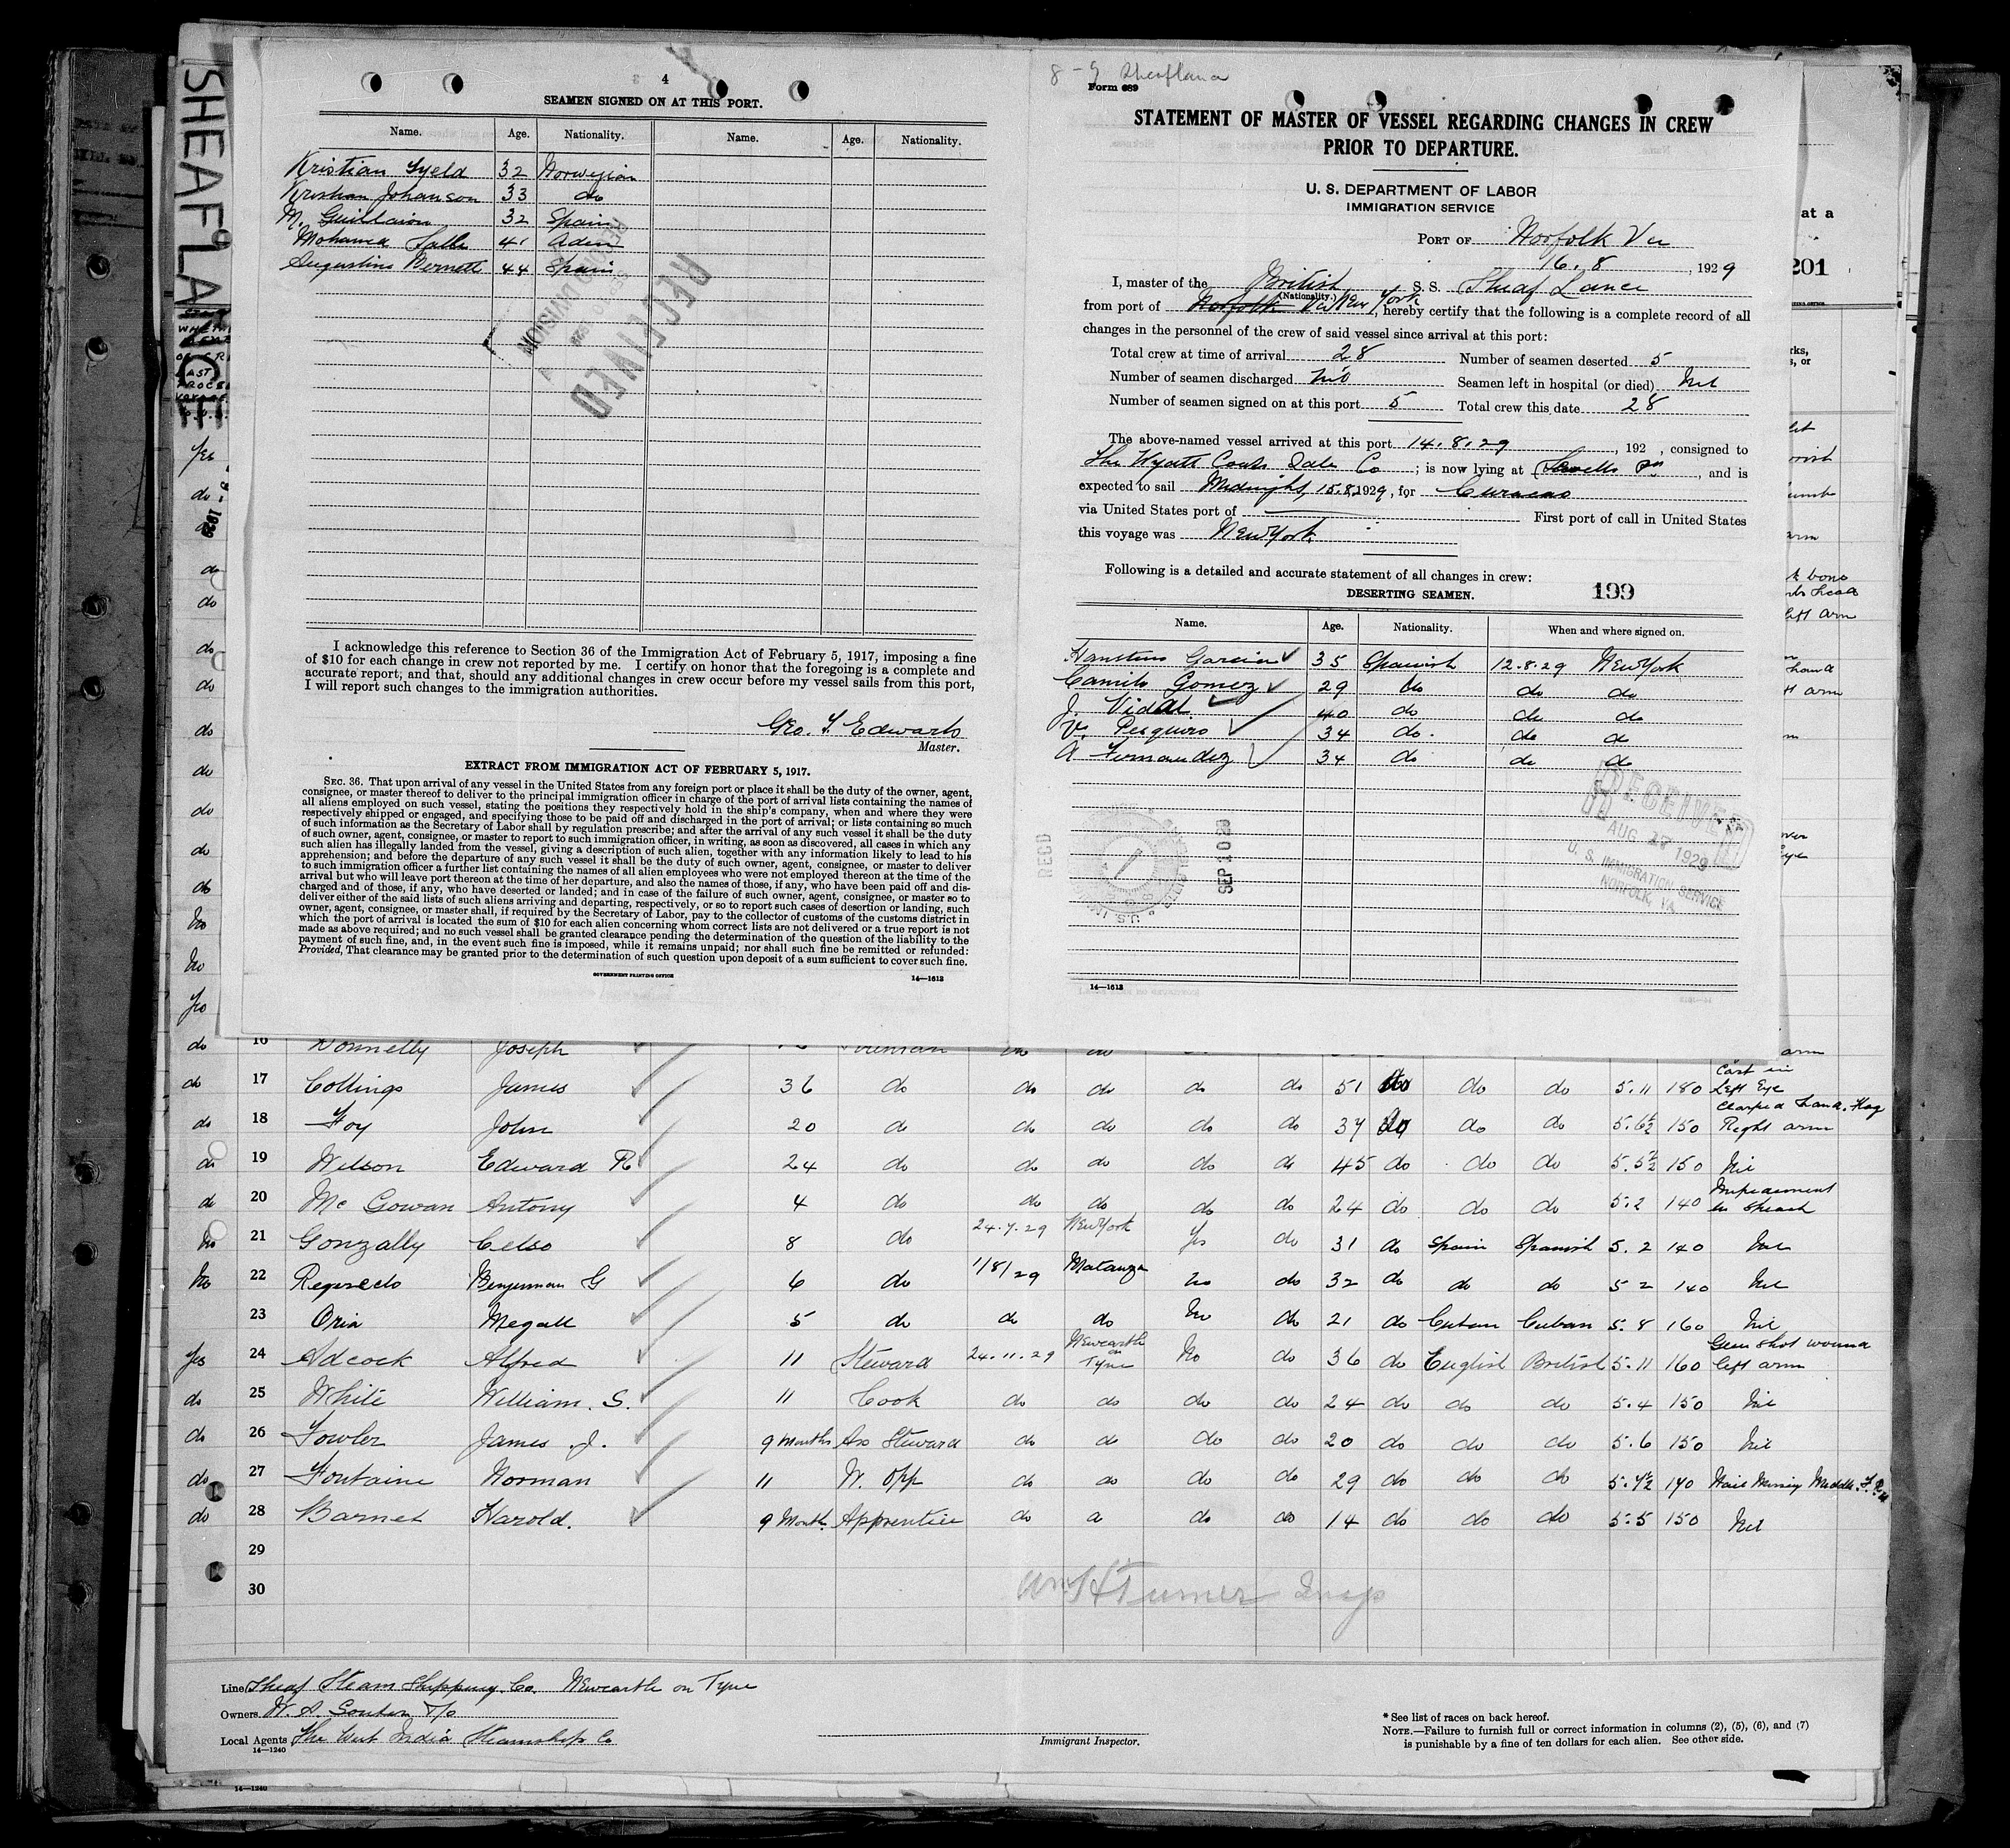 SHEAF LA
4
SEAMEN SIGNED ON AT THIS PORT.
Name. Age. Nationality. Name. Age. Nationality.
Kristian Gjeld 32 Norwegian
Kristian Johanson 33 do
M. Guillaion 32 Spain
Mohamed Salle 41 Aden
Augustino Bernett 44 Spain
RECEIVED
DIVISION
I acknowledge this reference to Section 36 of the Immigration Act of February 5, 1917, imposing a fine
of $10 for each change in crew not reported by me. I certify on honor that the foregoing is a complete and
accurate report; and that, should any additional changes in crew occur before my vessel sails from this port,
I will report such changes to the immigration authorities.
Geo. T. Edwards
Master.
EXTRACT FROM IMMIGRATION ACT OF FEBRUARY 5, 1917.
SEC. 36. That upon arrival of any vessel in the United States from any foreign port or place it shall be the duty of the owner, agent,
consignee, or master thereof to deliver to the principal immigration officer in charge of the port of arrival lists containing the names of
all aliens employed on such vessel, stating the positions they respectively hold in the ship's company, when and where they were
respectively shipped or engaged, and specifying those to be paid off and discharged in the port of arrival; or lists containing so much
of such information as the Secretary of Labor shall by regulation prescribe; and after the arrival of any such vessel it shall be the duty
of such owner, agent, consignee, or master to report to such immigration officer, in writing, as soon as discovered, all cases in which any
such alien has illegally landed from the vessel, giving a description of such alien, together with any information likely to lead to his
apprehension; and before the departure of any such vessel it shall be the duty of such owner, agent, consignee, or master to deliver
to such immigration officer a further list containing the names of all alien employees who were not employed thereon at the time of the
arrival but who will leave port thereon at the time of her departure, and also the names of those, if any, who have been paid off and dis-
charged and of those, if any, who have deserted or landed; and in case of the failure of such owner, agent, consignee, or master so to
deliver either of the said lists of such aliens arriving and departing, respectively, or so to report such cases of desertion or landing, such
owner, agent, consignee, or master shall, if required by the Secretary of Labor, pay to the collector of customs of the customs district in
which the port of arrival is located the sum of $10 for each alien concerning whom correct lists are not delivered or a true report is not
made as above required; and no such vessel shall be granted clearance pending the determination of the question of the liability to the
payment of such fine, and, in the event such fine is imposed, while it remains unpaid; nor shall such fine be remitted or refunded:
Provided, That clearance may be granted prior to the determination of such question upon deposit of a sum sufficient to cover such fine.
GOVERNMENT PRINTING OFFICE 14—1613
8 - 9 Sheaflance
Form 689
STATEMENT OF MASTER OF VESSEL REGARDING CHANGES IN CREW
PRIOR TO DEPARTURE.
U. S. DEPARTMENT OF LABOR
IMMIGRATION SERVICE
PORT OF Norfolk Va
16. 8, 1929
I, master of the British S. S. Sheaf Lance
(Nationality.)
from port of Norfolk Va New York, hereby certify that the following is a complete record of all
changes in the personnel of the crew of said vessel since arrival at this port:
Total crew at time of arrival 28 Number of seamen deserted 5
Number of seamen discharged No Seamen left in hospital (or died) Nil
Number of seamen signed on at this port 5 Total crew this date 28
The above-named vessel arrived at this port 14.8.29, 192 , consigned to
The Wyatt Coal Sale Co; is now lying at Sewells Pt, and is
expected to sail Midnight, 15.8, 1929, for Curacao
via United States port of First port of call in United States
this voyage was New York
Following is a detailed and accurate statement of all changes in crew:
DESERTING SEAMEN. 199
Name. Age. Nationality. When and where signed on.
Faustino Garcia 35 Spanish 12.8.29 New York
Camilo Gomez 29 do do do
J. Vidal 40 do do do
V. Pesquiro 34 do do do
A Fernandez 34 do do do
RECEIVED
AUG 17 1929
U. S. IMMIGRATION SERVICE
NORFOLK, VA
RECD
SEP 10 29
14—1613
at a
201
16 Donnelly Joseph Fireman do do arm
do 17 Collings James 36 do do do do do 51 do do do 5.11 180 Cast in Left Eye
do 18 Foy John 20 do do do do do 37 do do do 5.6½ 150 Clasped hand. Flag Right arm
do 19 Wilson Edward R 24 do do do do do 45 do do do 5.5½ 150 Nil
do 20 Mc Gowan Antony 4 do do do do do 24 do do do 5.2 140 Impedement in Speach
No 21 Gonzally Celso 8 do 24.7.29 New York Yes do 31 do Spain Spanish 5.2 140 Nil
No 22 Regueedo Benjerman G 6 do 1/8/29 Matanza No do 32 do do do 5 2 140 Nil
23 Oria Megall 5 do do do No do 21 do Cuban Cuban 5.8 160 Nil
Yes 24 Adcock Alfred 11 Steward 24.11.29 Newcastle on Tyne No do 36 do English British 5.11 160 Gun Shot wound left arm
do 25 White William. S. 11 Cook do do do do 24 do do do 5.4 150 Nil
do 26 Fowler James J. 9 months As Steward do do do do 20 do do do 5.6 150 Nil
do 27 Fontaine Norman 11 W. Opp do do do do 29 do do do 5.7½ 140 Nail Missing Middle F. R. H
do 28 Barnet Harold. 9 Month Apprentice do do do do 14 do do do 5.5 150 Nil
29
30
Wm H Turner Insp
Line Sheaf Steam Shipping Co. Newcastle on Tyne
Owners W. A. Souter
Local Agents The West India Steamship Co
14—1240
Immigrant Inspector.
* See list of races on back hereof.
NOTE.—Failure to furnish full or correct information in columns (2), (5), (6), and (7)
is punishable by a fine of ten dollars for each alien. See other side.
14—1240